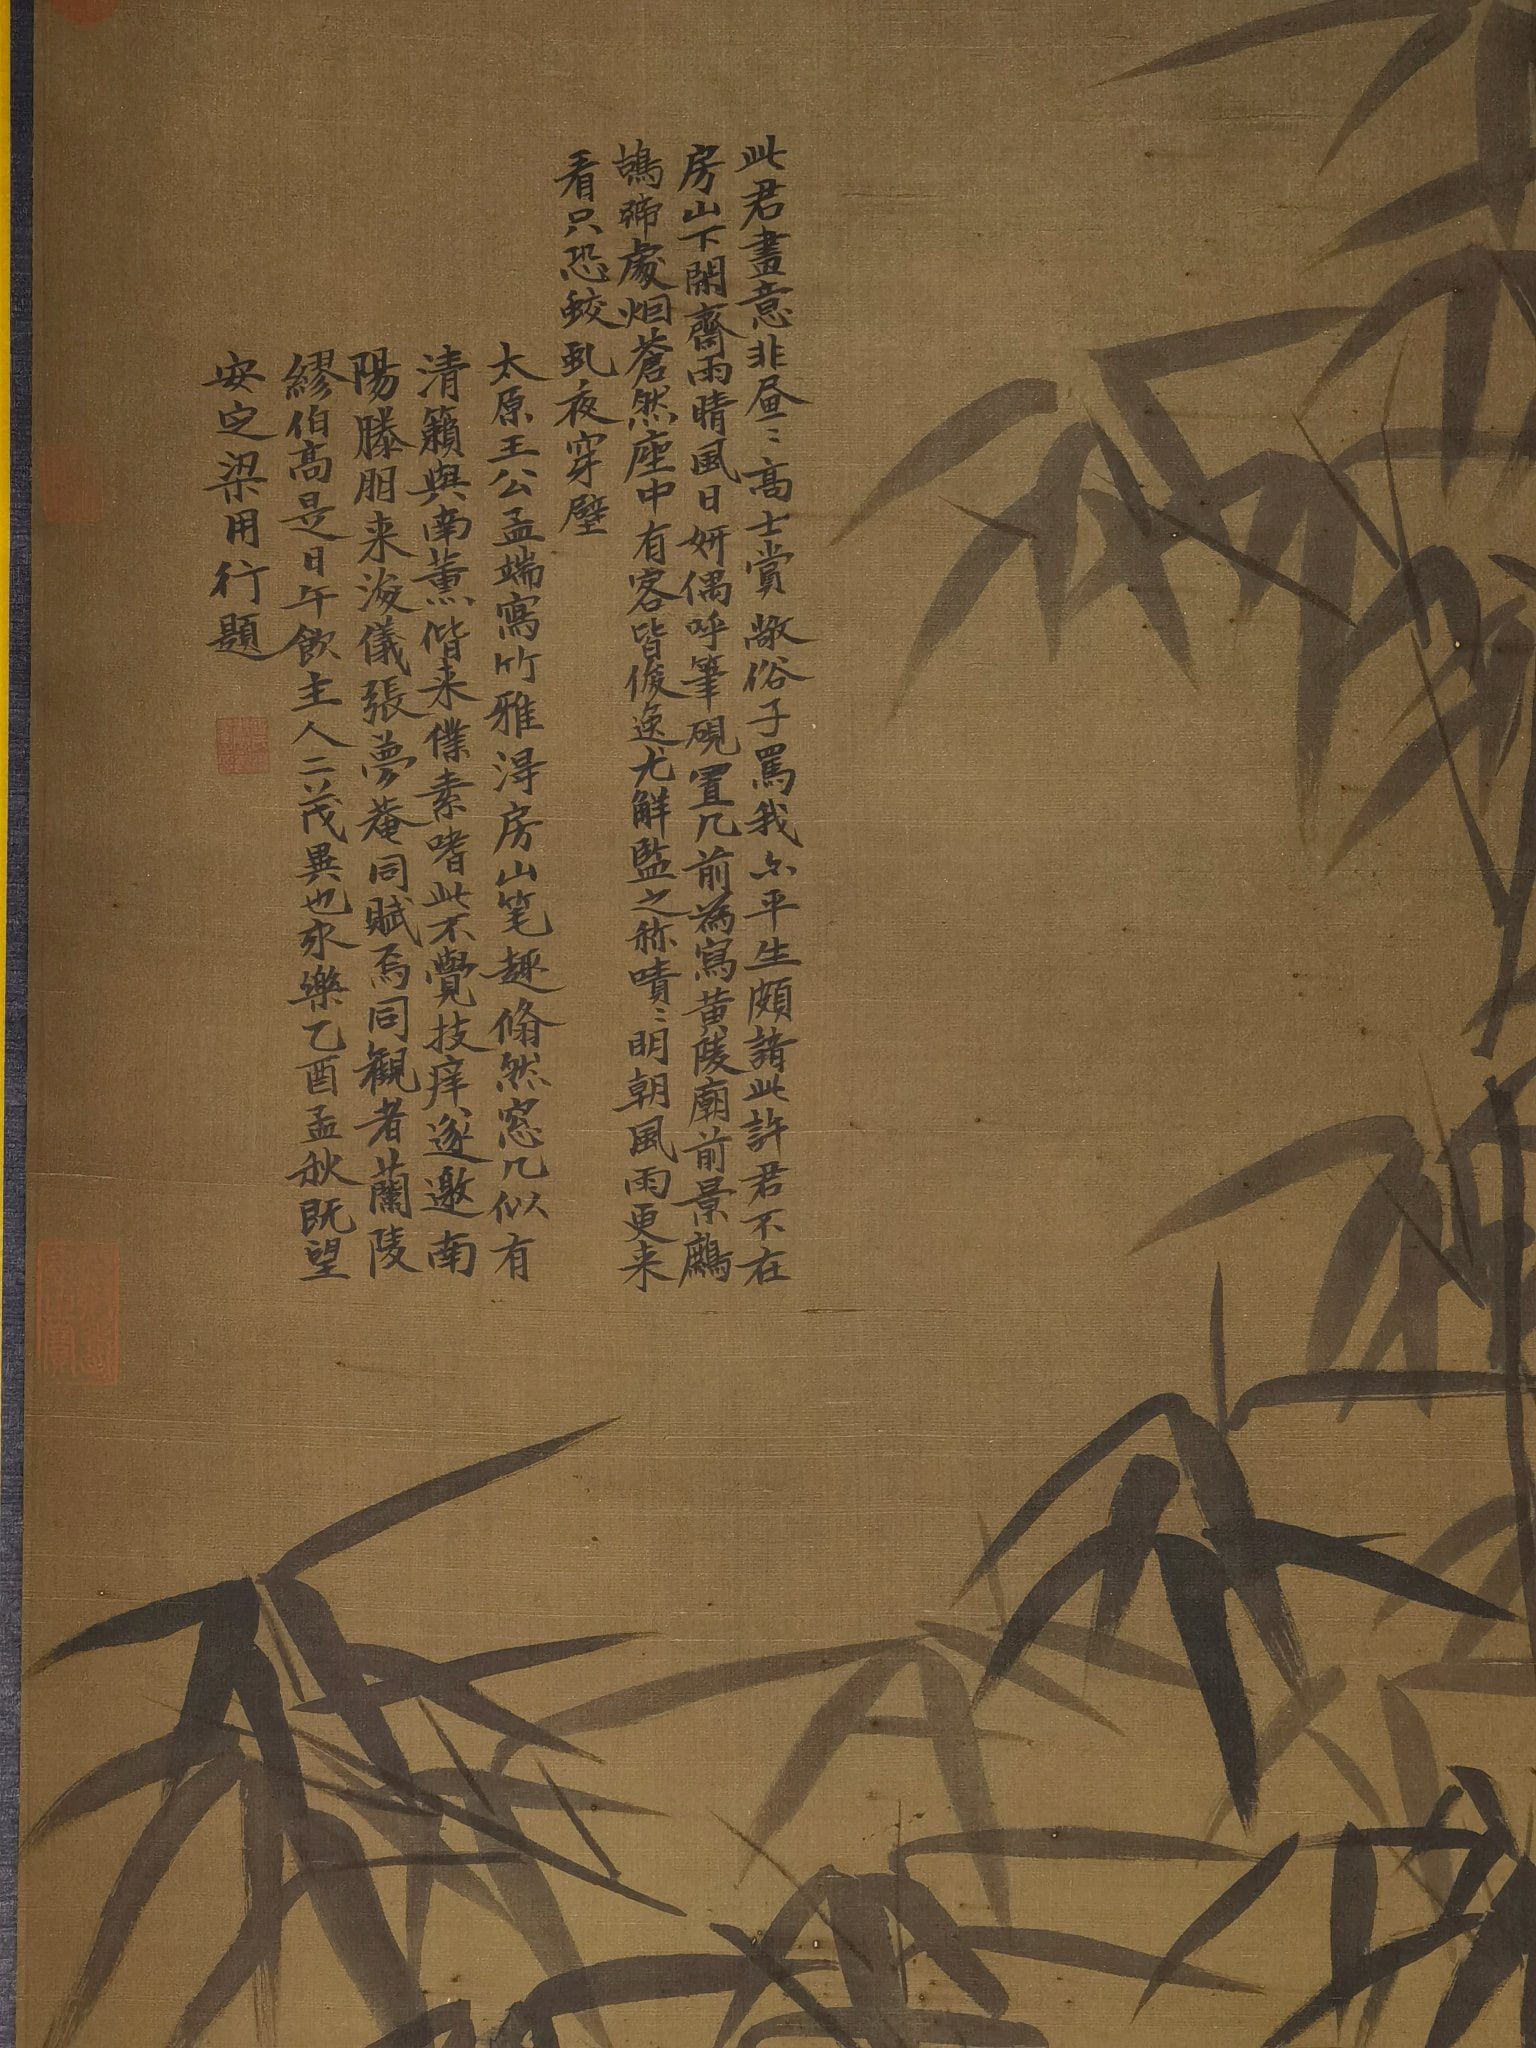 此君畫意非昼〻高士賞敬俗子罵我亦平生頗諳此許君不在
房山下開齋雨晴風日妍偶呼筆硯置几前為寫黃陵廟前景鷓
鴣啼處烟蒼然座中有客皆俊逸尤鮮監之称嘖〻明朝風雨更来
看只恐蛟虬夜穿壁
太原王公孟端寫竹雅淂房山笔趣翛然窓几似有
清籟與南薰偕来僕素嗜此不覺技痒遂邀南
陽滕用来浚儀張夢菴同賦焉同觀者蘭陵
繆伯高是日午飲主人二茂異也永樂乙酉孟秋既望
安定梁用行題